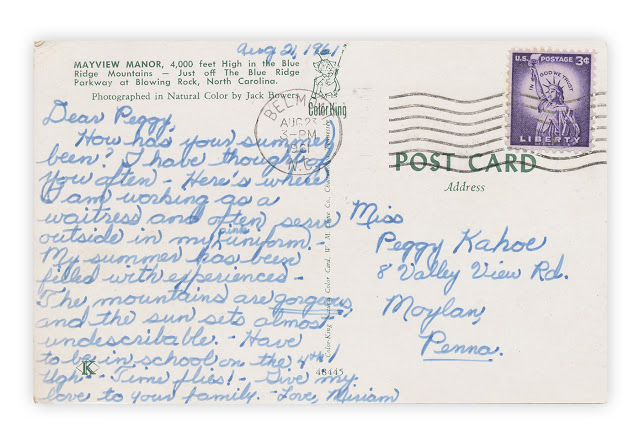 Aug 21, 1961
MAYVIEW MANOR, 4,000 feet High in the Blue
Ridge Mountains — Just off The Blue Ridge
Parkway at Blowing Rock, North Carolina.
Photographed in Natural Color by Jack Bowers
Color King
BELM
AUG 23
3-PM
1961
N.C.
U.S. POSTAGE 3¢
IN GOD WE TRUST
LIBERTY
Dear Peggy,
How has your summer
been? I have thought of
you often - Here's where
I am working as a
waitress and often serve
outside in my pink uniform. -
My summer has been
filled with experiences -
The mountains are gorgous
and the sun sets almost
undescribable. - Have
to be in school on the 4th!
Ugh - Time flies! - Give my
love to your family. - Love, Miriam
K
Color-King Color Card, W. M. Cline Co.,
48445
POST CARD
Address
Miss
Peggy Kahoe
8 Valley View Rd.
Moylan,
Penna.